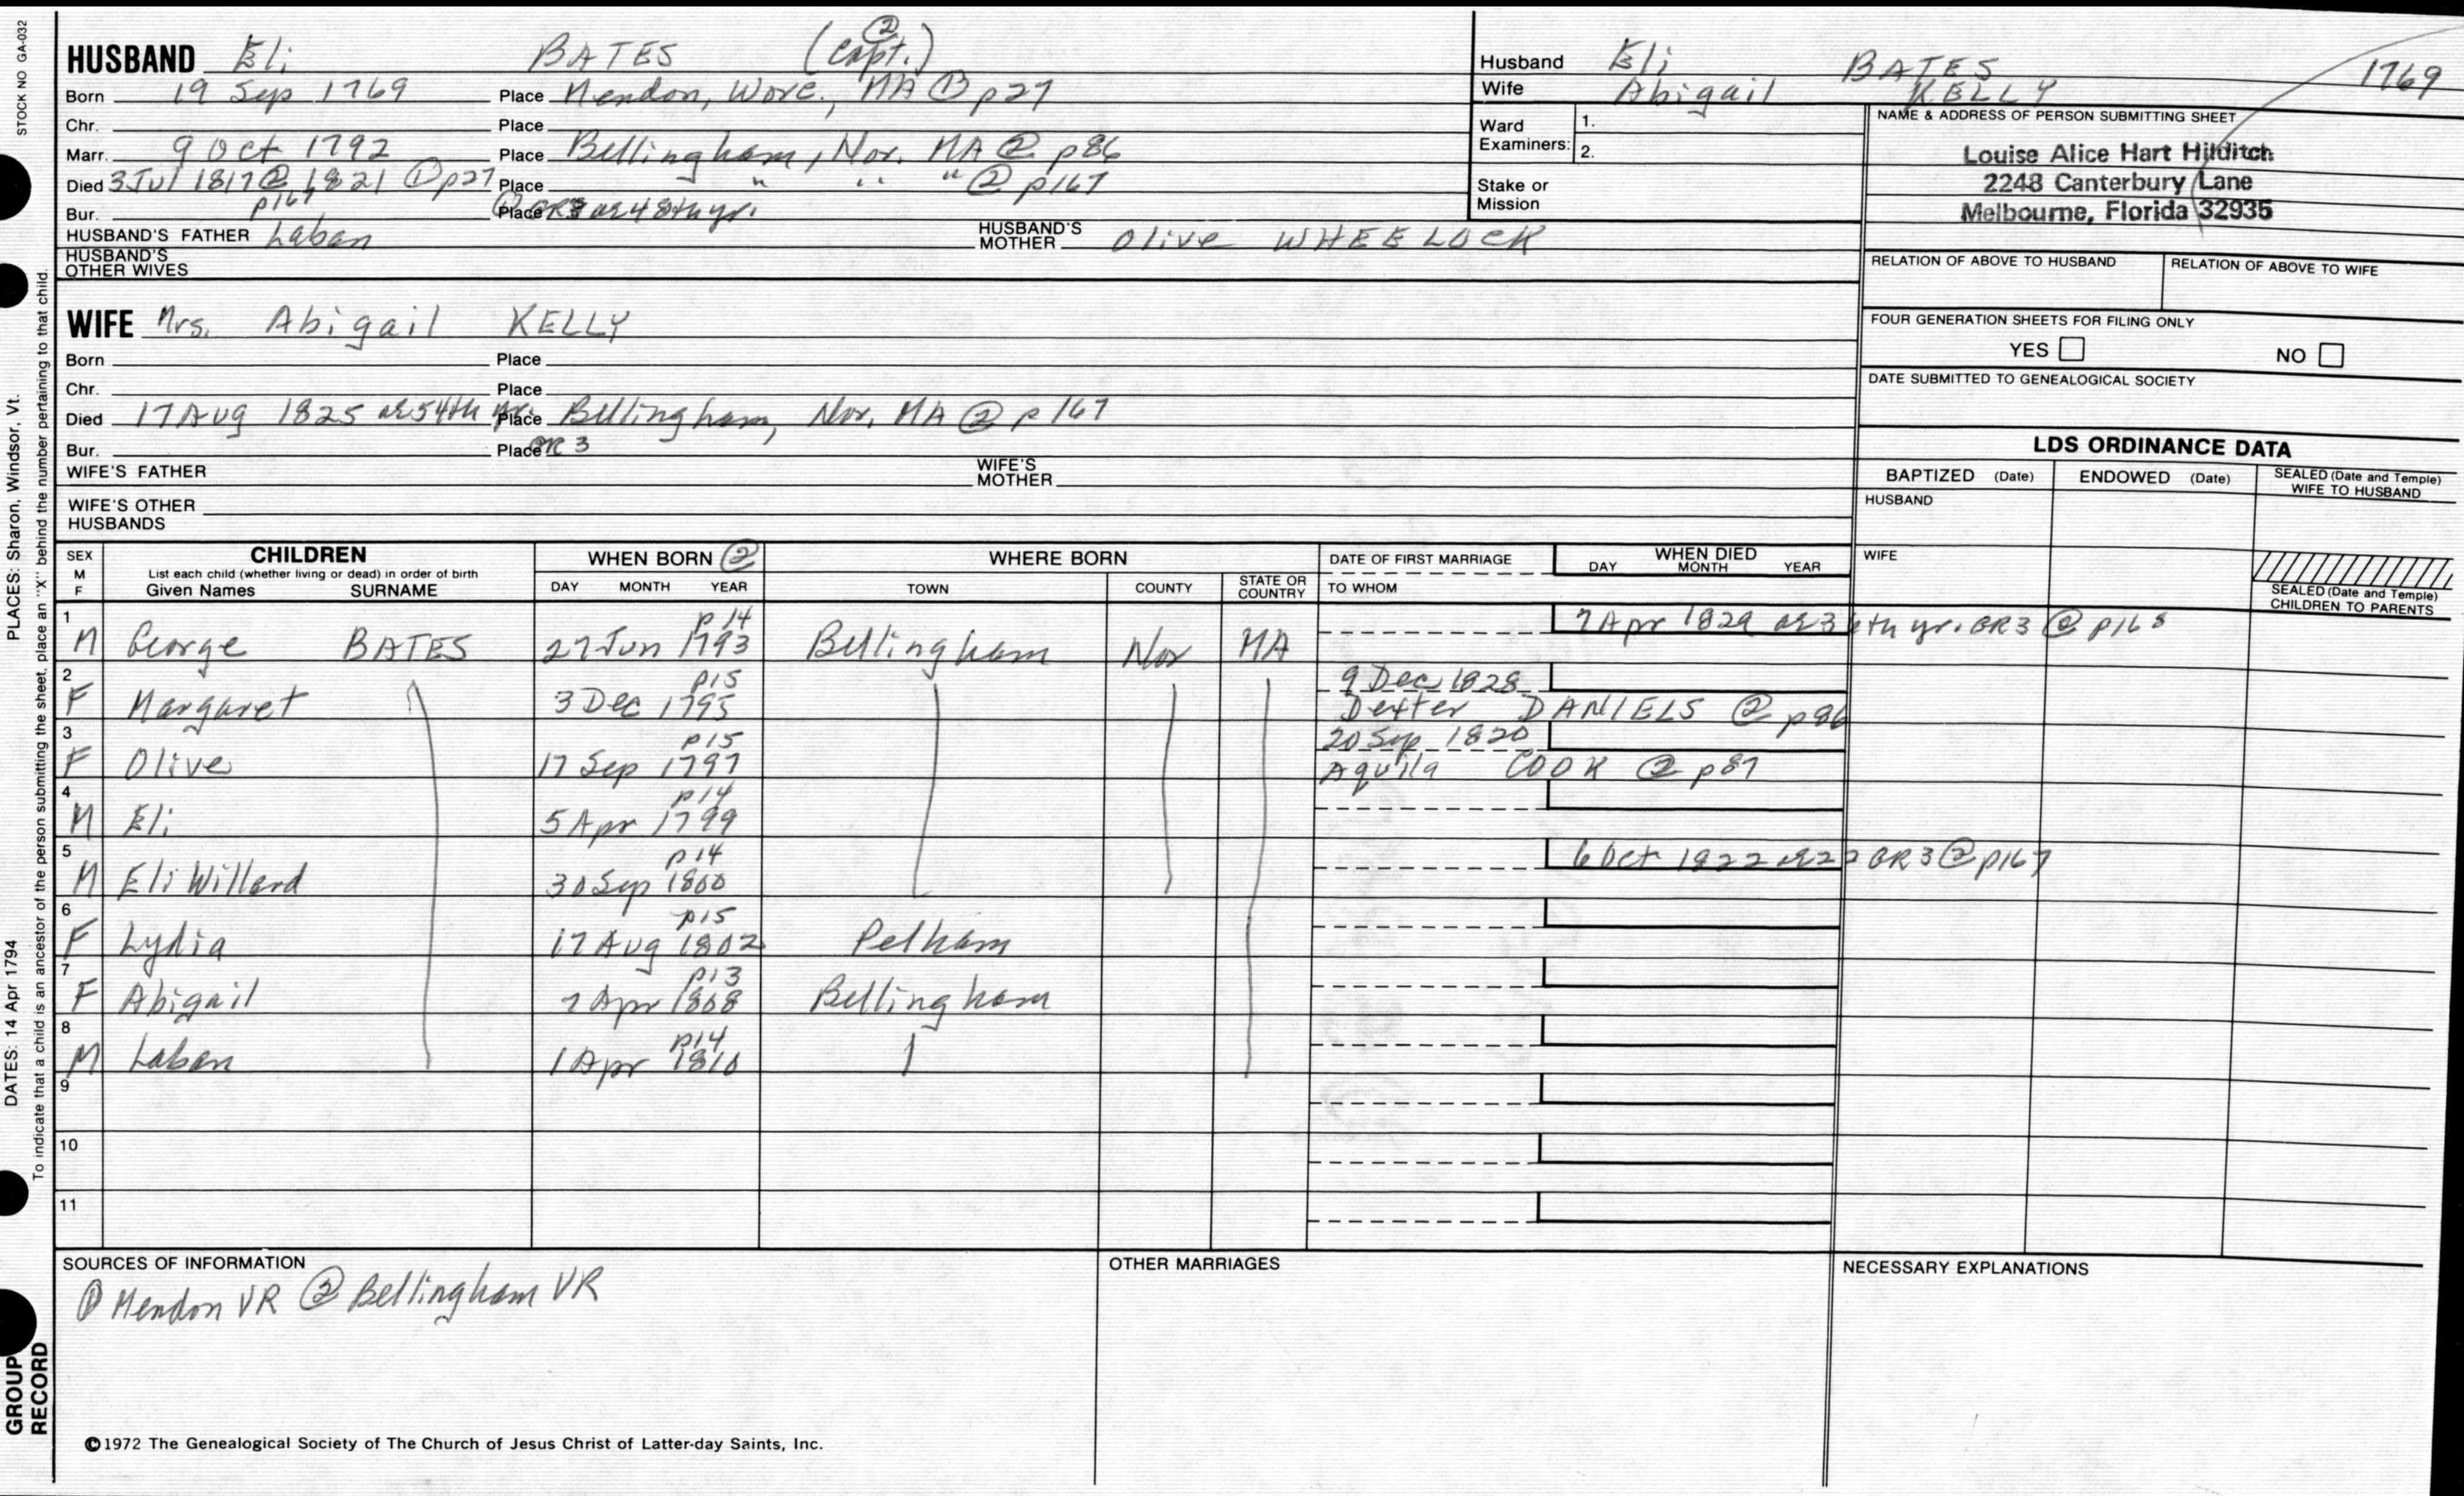 STOCK NO GA-032
HUSBAND Eli BATES (Capt.) ②
Born 19 Sep 1769 Place Mendon, Worc., MA ① p27
Chr. Place
Marr. 9 Oct 1792 Place Bellingham, Nor. MA ② p86
Died 3 Jul 1817 ② 1821 ① p27 Place " " " ② p167
p167
Bur. Place GR3 ae 48th yr.
HUSBAND'S FATHER Laban HUSBAND'S MOTHER Olive WHEELOCK
HUSBAND'S OTHER WIVES
Husband Eli BATES 1769
Wife Abigail KELLY
Ward Examiners: 1.
2.
Stake or Mission
NAME & ADDRESS OF PERSON SUBMITTING SHEET
Louise Alice Hart Hilditch
2248 Canterbury Lane
Melbourne, Florida 32935
RELATION OF ABOVE TO HUSBAND RELATION OF ABOVE TO WIFE
FOUR GENERATION SHEETS FOR FILING ONLY
YES NO
DATE SUBMITTED TO GENEALOGICAL SOCIETY
WIFE Mrs. Abigail KELLY
Born Place
Chr. Place
Died 17 Aug 1825 ae 54th yr. Place Bellingham, Nor. MA ② p167
Bur. Place GR 3
WIFE'S FATHER WIFE'S MOTHER
WIFE'S OTHER HUSBANDS
LDS ORDINANCE DATA
BAPTIZED (Date) ENDOWED (Date) SEALED (Date and Temple) WIFE TO HUSBAND
HUSBAND
WIFE
SEALED (Date and Temple) CHILDREN TO PARENTS
SEX M F CHILDREN WHEN BORN ② WHERE BORN DATE OF FIRST MARRIAGE WHEN DIED
List each child (whether living or dead) in order of birth
Given Names SURNAME DAY MONTH YEAR TOWN COUNTY STATE OR COUNTRY TO WHOM DAY MONTH YEAR
1 p14 7 Apr 1829 ae 36th yr. GR3 ② p168
M George BATES 27 Jun 1793 Bellingham Nor MA
2 p15 9 Dec 1828
F Margaret 3 Dec 1795 Dexter DANIELS ② p86
3 p15 20 Sep 1820
F Olive 17 Sep 1797 Aquila COOK ② p87
4 p14
M Eli 5 Apr 1799
5 p14 6 Oct 1822 ae 22 GR3 ② p167
M Eli Willard 30 Sep 1800
6 p15
F Lydia 17 Aug 1802 Pelham
7 p13
F Abigail 7 Apr 1808 Bellingham
8 p14
M Laban 1 Apr 1810
9
10
11
SOURCES OF INFORMATION OTHER MARRIAGES NECESSARY EXPLANATIONS
① Mendon VR ② Bellingham VR
©1972 The Genealogical Society of The Church of Jesus Christ of Latter-day Saints, Inc.
PLACES: Sharon, Windsor, Vt.
DATES: 14 Apr 1794
To indicate that a child is an ancestor of the person submitting the sheet, place an "X" behind the number pertaining to that child.
GROUP RECORD